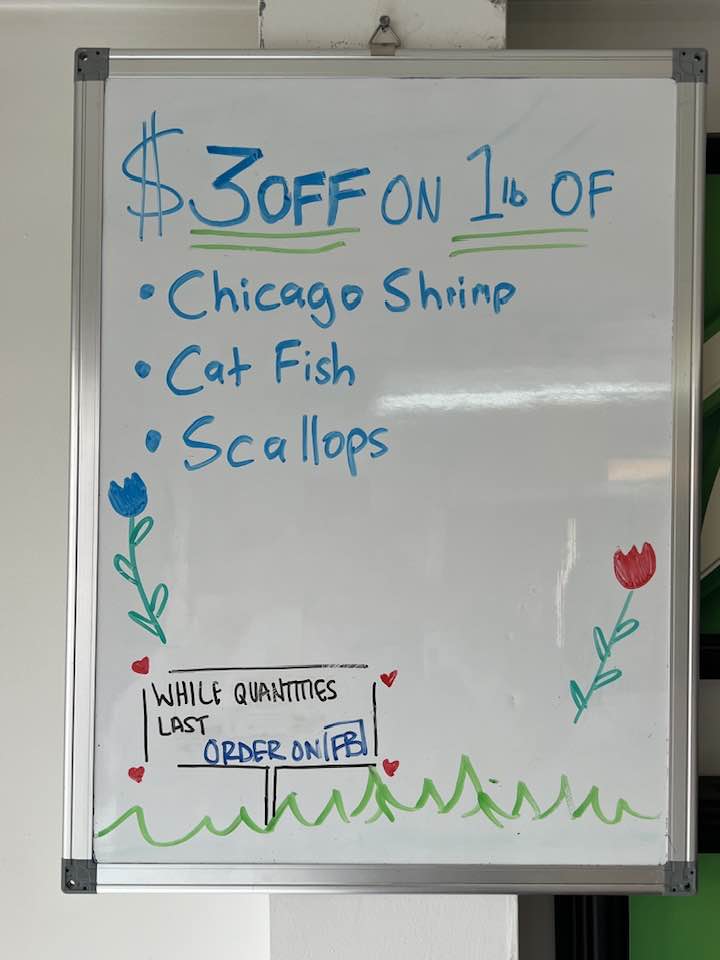 $3 OFF ON 1lb OF
• Chicago Shrimp
• Cat Fish
• Scallops
WHILE QUANTITIES
LAST
ORDER ON FB